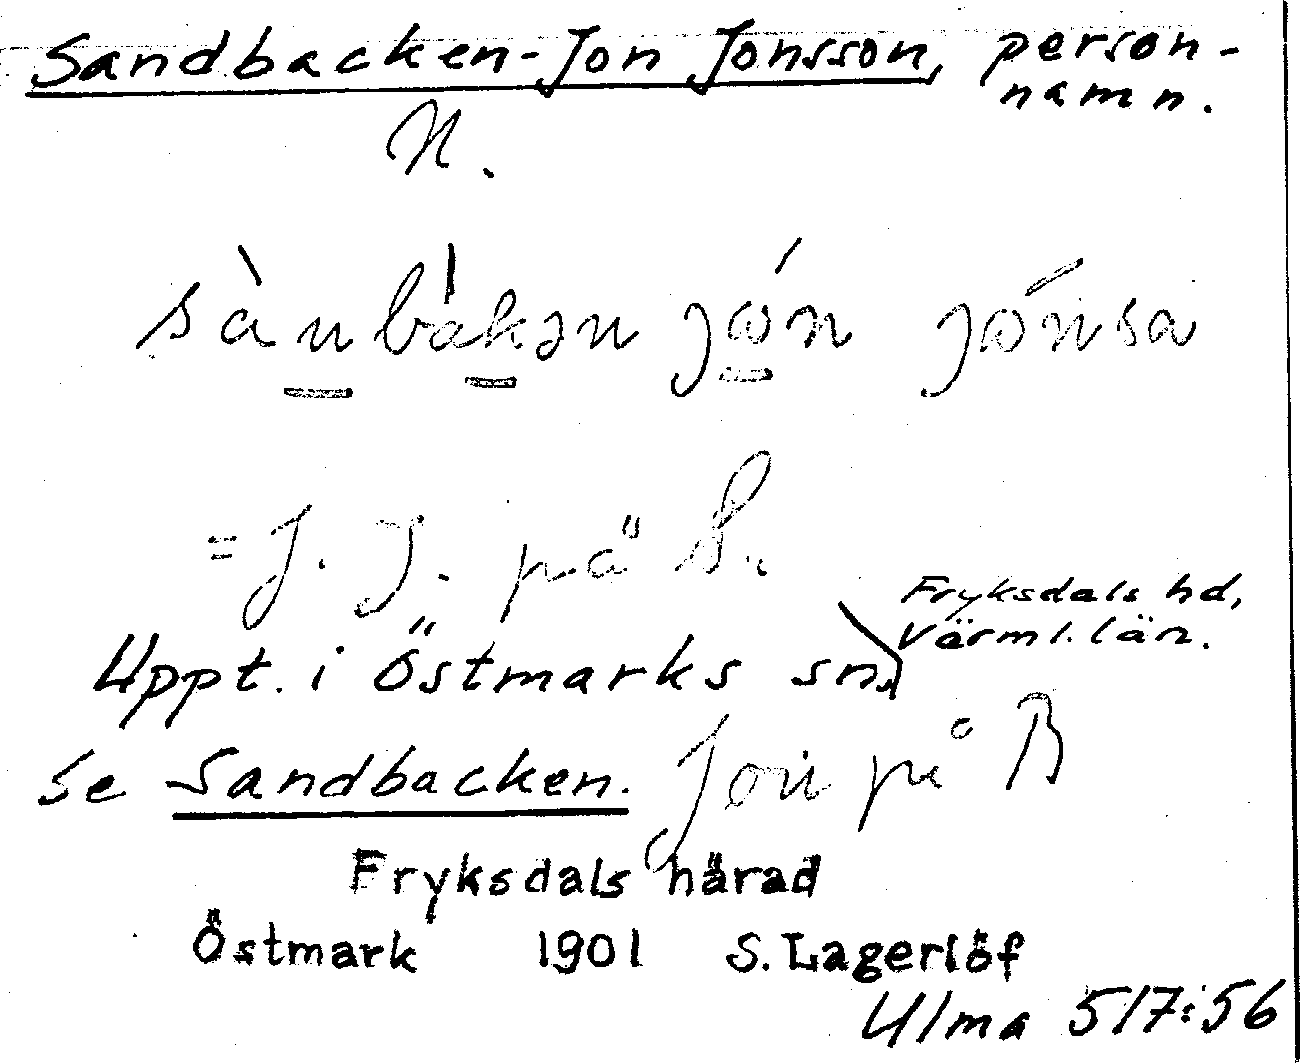 Sandbacken-Jon Jonsson, person-
namn.
N.
sànbàkən jón jónsa
= J. J. på S.
Fryksdals hd,
Värml. län.
Uppt. i Östmarks sn.
Se Sandbacken. Jon på B
Fryksdals härad
Östmark 1901 S. Lagerlöf
Ulma 517:56